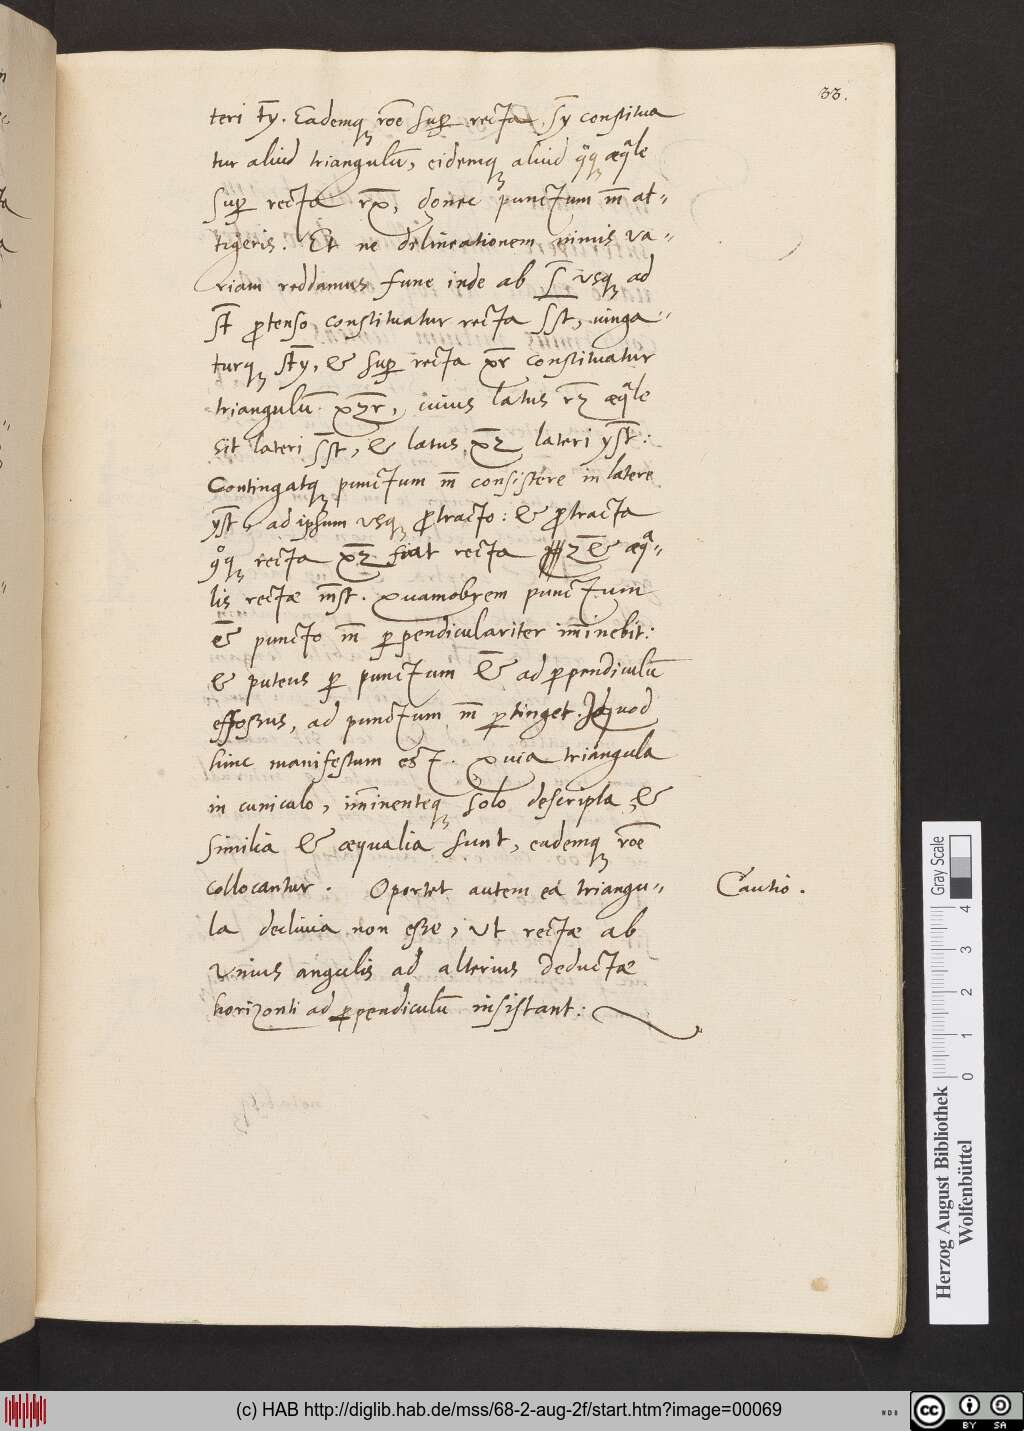 33.
teri t̄y. Eademq₃ rōe sup recta s̄y constitua
tur aliud triangulū, eidemq₃ aliud qq₃ æqle
sup recta rx̄, donec punctum m̄ at-
tigeris. Et ne delineationem nimis va-
riam reddamus fune inde ab s̄ usq₃ ad
s̄t ptenso, constituatur recta sst, iunga-
turq₃ s̄ty, & sup recta x̄r constituatur
triangulū xz̄r, cuius latus rz æqle
sit lateri s̄st, & latus x̄z lateri ys̄t:
Contingatq₃ punctum m̄ consistere in latere
ys̄t, ad ipsum usq₃ ptracto: & ptracta
qoq₃ recta x̄z fiat recta z̄& æqa-
lis rectæ m̄st. Quamobrem punctum
&̄ puncto m̄ ppendiculariter im̄inebit:
& puteus p punctum &̄ ad ppendiculū
effossus, ad punctum m̄ ptinget. Idquod
hinc manifestum est. Quia triangula
in cuniculo, im̄inenteq₃ solo descripta, &
similia & æqualia sunt, eademq₃ rōe
collocantur. Oportet autem ea triangu-
la declivia non esse, ut rectæ ab
unius angulis ad alterius deductæ
horizonti ad ppendiculū insistant:
Cautio.
Gray Scale
0 1 2 3 4
Herzog August Bibliothek
Wolfenbüttel
(c) HAB http://diglib.hab.de/mss/68-2-aug-2f/start.htm?image=00069
cc BY SA